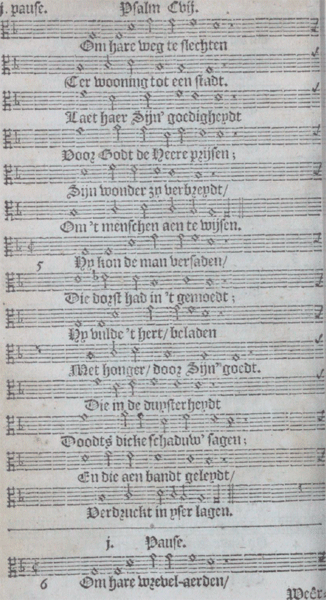 j. pause. Psalm Cvij.
Om hare weg te slechten
Ter wooning tot een stadt.
Laet haer Sijn' goedigheydt
Voor Godt de Heere prijsen;
Sijn wonder zy verbreydt/
Om 't menschen aen te wijsen.
5 Hy kon de man versaden/
Die dorst had in 't gemoedt;
Hy vulde 't hert/ beladen
Met honger/ door Sijn' goedt.
Die in de duysterheydt
Doodts dicke schaduw' sagen;
En die aen bandt geleydt/
Verdruckt in yser lagen.
j. Pause.
6 Om hare wrevel-aerden/
Weêr-